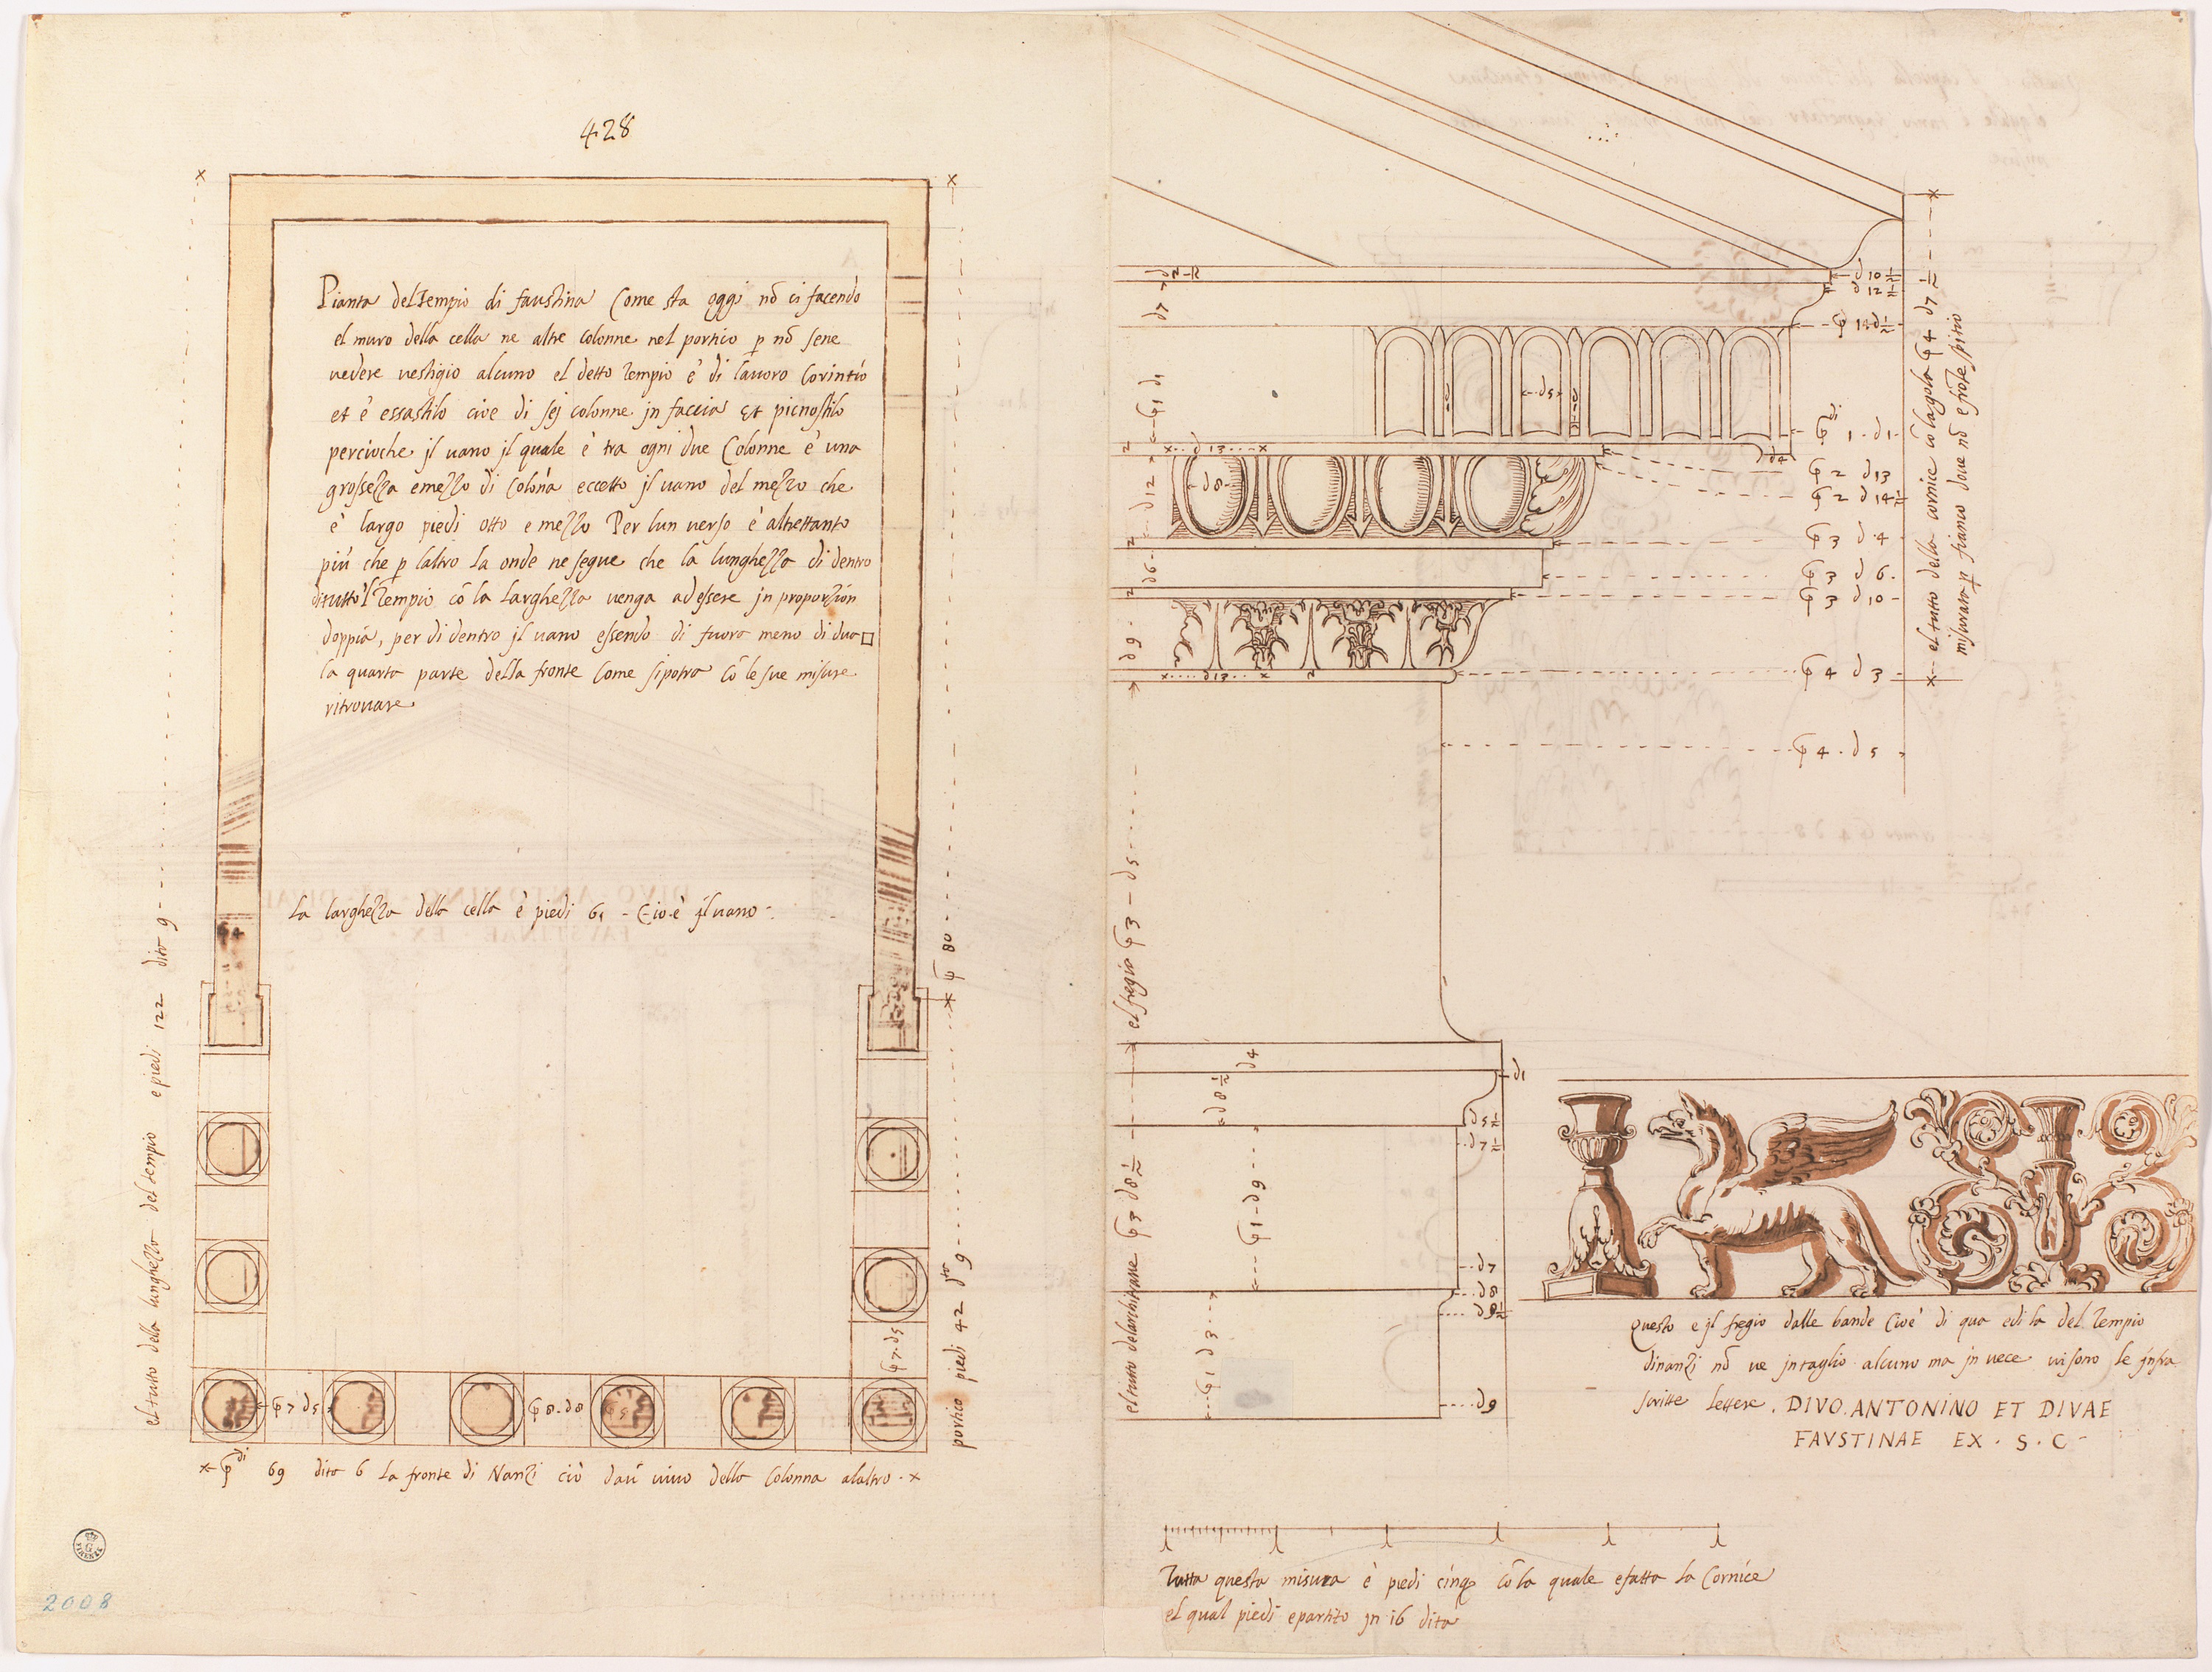 428
Pianta del Tempio di faustina Come sta oggi nō ci facendo
el muro della cella ne altre colonne nel portico p nō sene
vedere vestigio alcuno el detto Tempio è di lavoro Corintio
et è essastilo cioe di sej colonne jn faccia et picnostilo
percioche jl vano jl quale è tra ogni due Colonne è una
grossezza emezzo di Colōna eccetto jl vano del mezzo che
è largo piedi otto e mezzo Per lun verso è altrettanto
più che p laltro la onde ne segue che la lunghezza di dentro
di tutto l Tempio cō la larghezza venga adessere jn proporzion
doppia, per di dentro jl vano essendo di fuora meno di dua
la quarta parte della fronte Come si potra cō le sue misure
ritrovare
La larghezza della cella è piedi 61 - Cioè jl vano
el tutto della lunghezza del tempio e piedi 122 dito 9
p 4
p 80
portico piedi 42 dto 9
p 7 d 5
p 7 d 5
p 8 . d 8
p 5
pdi 69 dito 6 La fronte di Nanzi ciò daū vivo della Colonna alaltro
2008
G
FIRENZE
d 7
p 1 d 1
2
d 12
2
d 6
2
d 9
d 5
d 13
d 8
d 13
d 4
d 10 1/2
d 12 1/2
pdi 1 . d 1
p 2 d 13
p 2 d 14 1/2
p 3 d 4
p 3 d 6
p 3 d 10
p 4 d 3
p 4 . d 5
el tutto della cornice cō la gola p 4 d 7 1/2
misurata p fianco dove nō e frōtespitio
el fregio p 3 - d 5
el tutto delarchitrave p 3 d 8 1/2
d 4
d 8 1/2
p 1 - d 9
p 1 d 3
d 1
d 5 1/2
d 7 1/2
d 7
d 8
d 8 1/2
d 9
Questo e jl fregio dalle bande Cioè di qua edi la del Tempio
dinanzi nō ve jntaglio alcuno ma jn vece vi sono le jnfra
scritte lettere . DIVO . ANTONINO ET DIVAE
FAVSTINAE EX . S . C
Tutta questa misura è piedi cinq cō la quale efatta la Cornice
el qual piedi epartito jn 16 dita